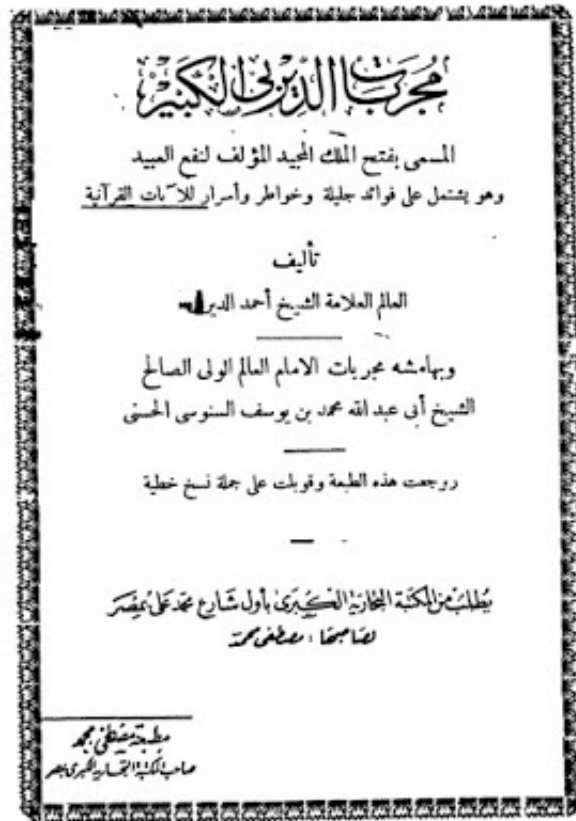 مجربات الديربى الكبير
المسمى بفتح الملك المجيد المؤلف لنفع العبيد
وهو يشتمل على فوائد جليلة وخواطر وأسرار للآيات القرآنية
تأليف
العالم العلامة الشيخ أحمد
وبهامشه مجربات الامام العالم الولى الصالح
الشيخ أبى عبد الله محمد بن يوسف السنوسى الحسنى
روجعت هذه الطبعة وقوبلت على جملة نسخ خطية
يطلب من المكتبة التجارية الكبرى بأول شارع محمد على بمصر
لصاحبها : مصطفى محمد
مطبعة مصطفى محمد
صاحب المكتبة التجارية الكبرى بمصر